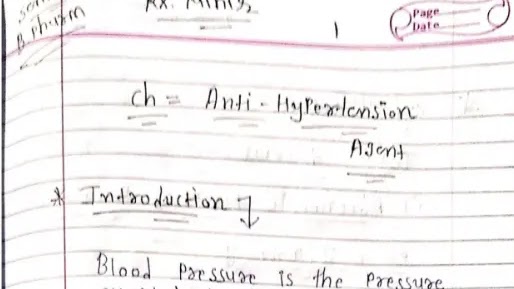 B. pharm
Rx.
1
Page
Date
ch = Anti - Hypertension
Agent
* Introduction ↓
Blood Pressure is the Pressure